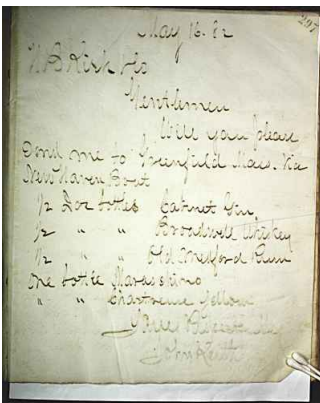 297
May 16. 82
H B Kirk & Co
Gentlemen
Will you please
Send me to Greenfield Mass. Via
New Haven Boat
1/2 Doz bottles Cabinet Gin
1/2 " " Broadwell Whiskey
1/2 " " Old Medford Rum
One bottle Maraschino
" " Chartreuse Yellow
John